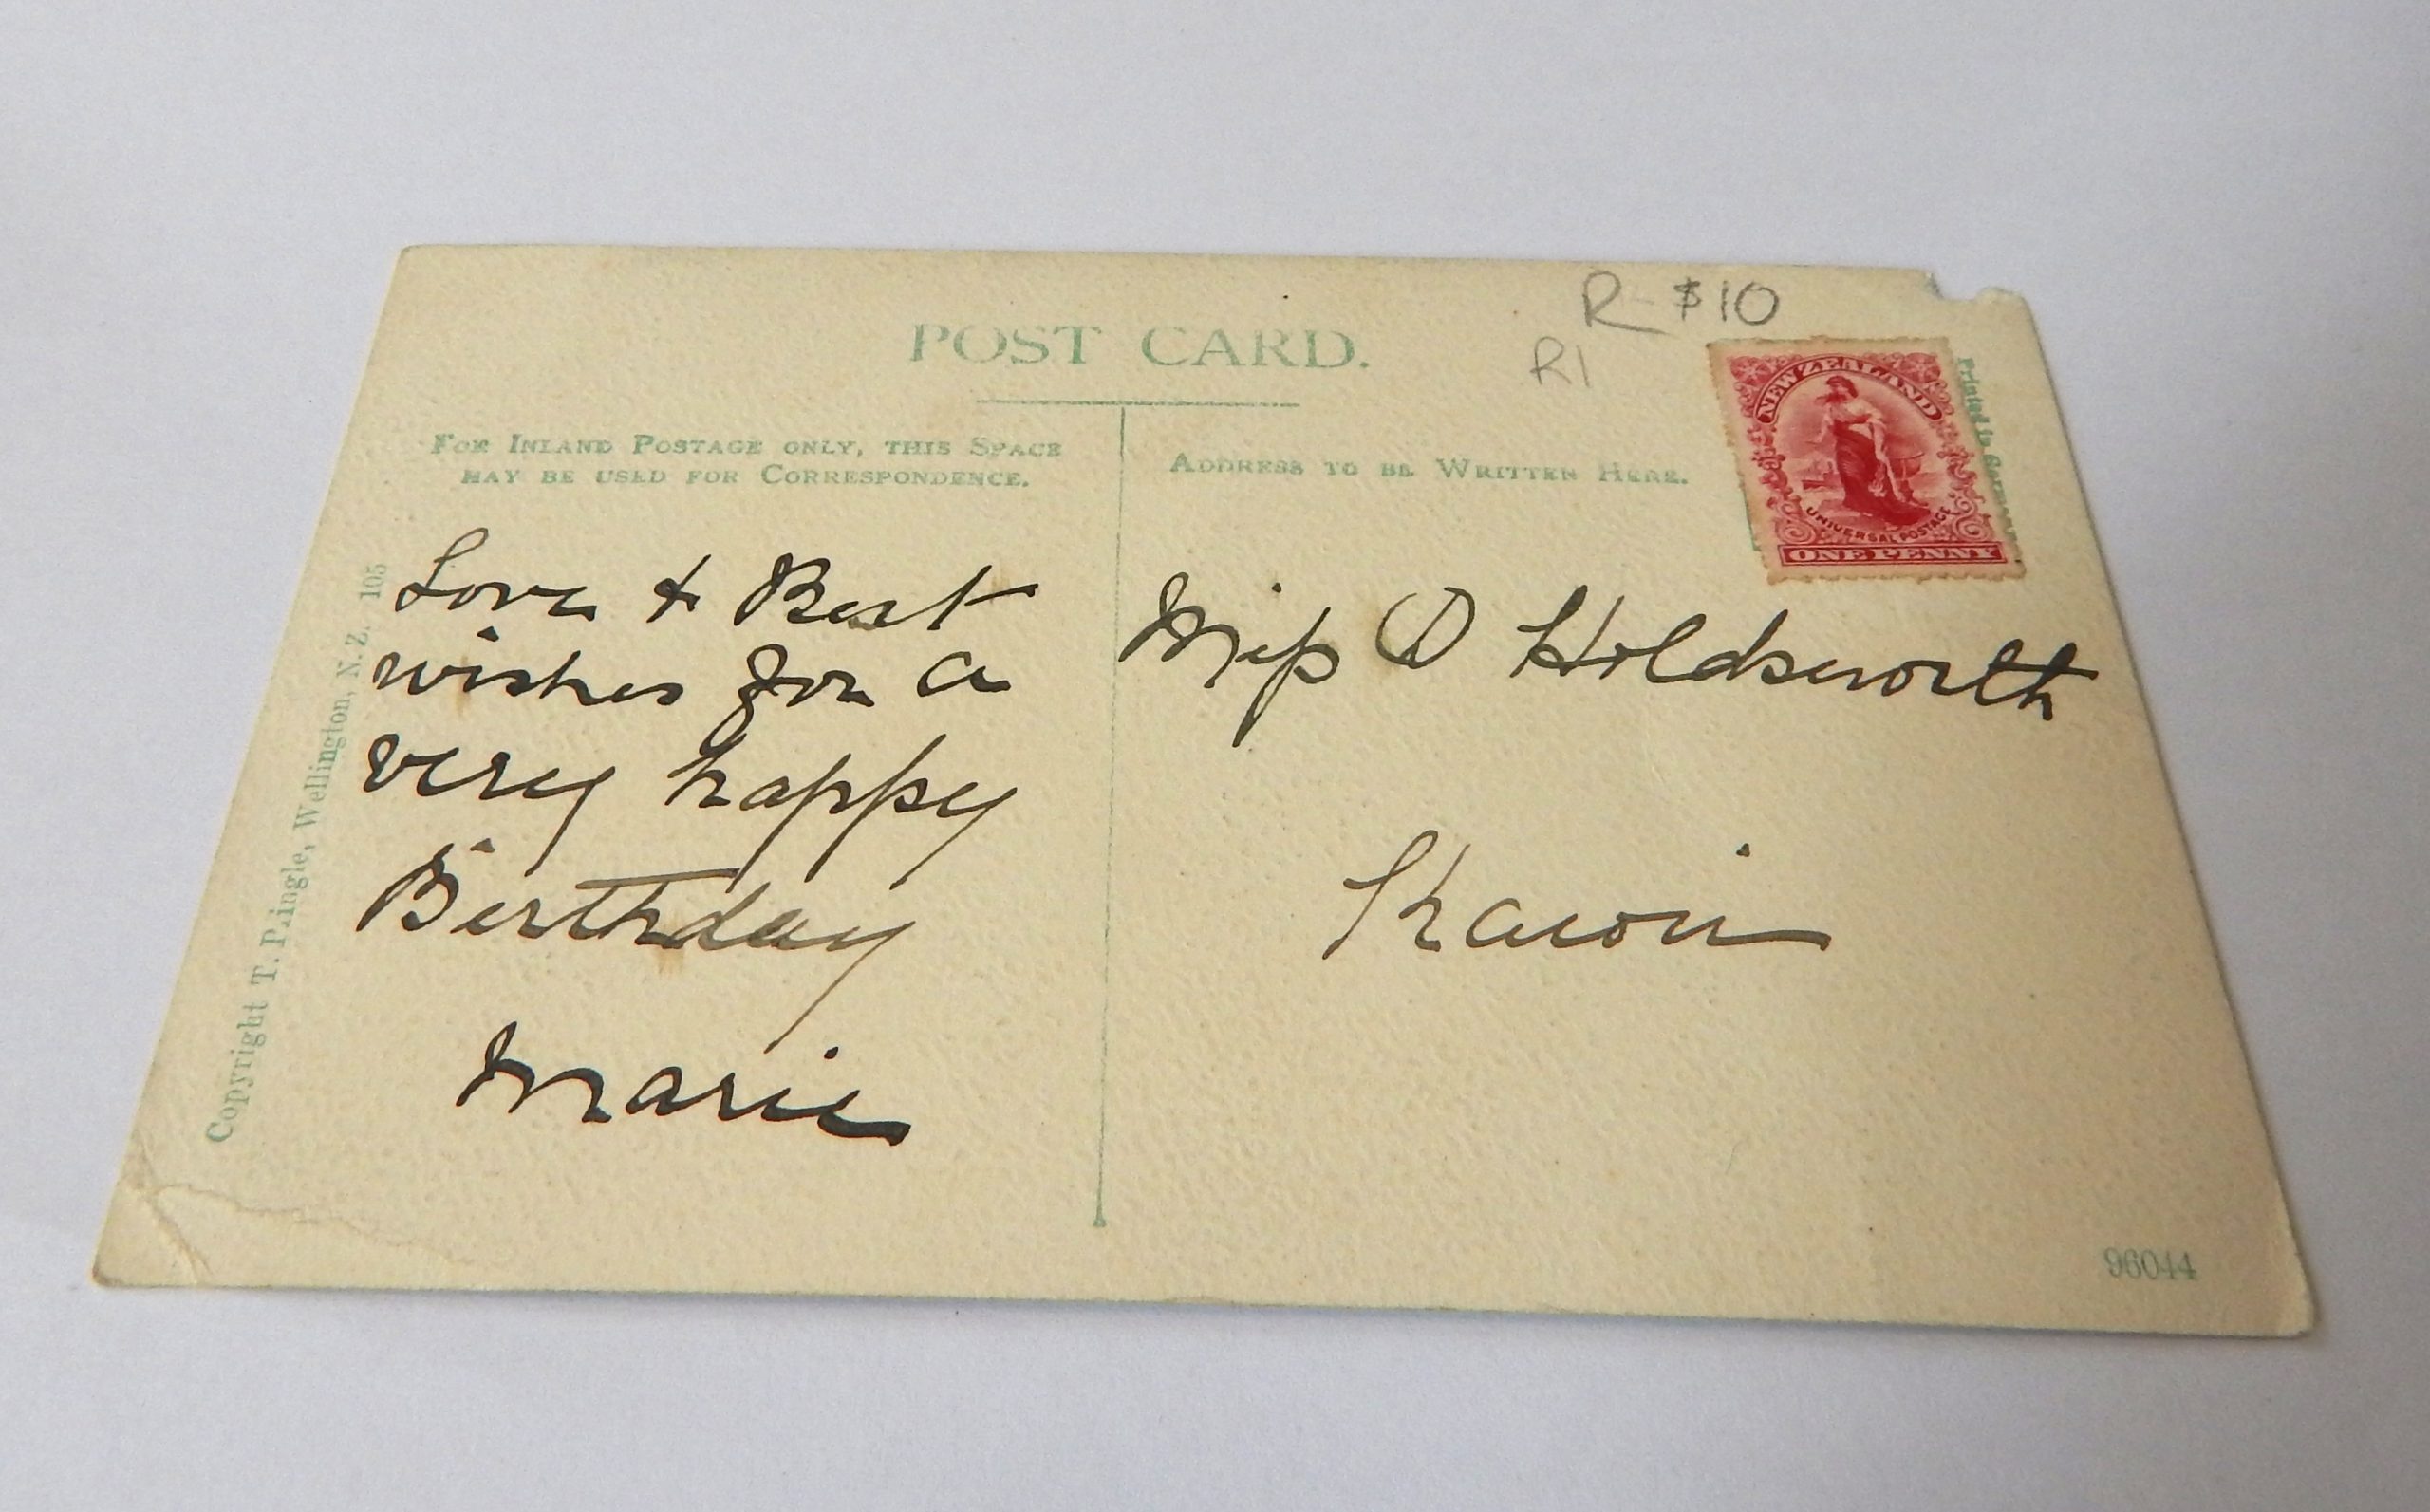 POST CARD.
R - $10
R1
FOR INLAND POSTAGE ONLY, THIS SPACE
MAY BE USED FOR CORRESPONDENCE.
ADDRESS TO BE WRITTEN HERE.
NEW ZEALAND
UNIVERSAL POSTAGE
ONE PENNY
Printed in Germany
Love & Best
wishes for a
very happy
Birthday
Marie
Miss D Holdsworth
Karori
Copyright T. Pringle, Wellington, N.Z. 105
96044